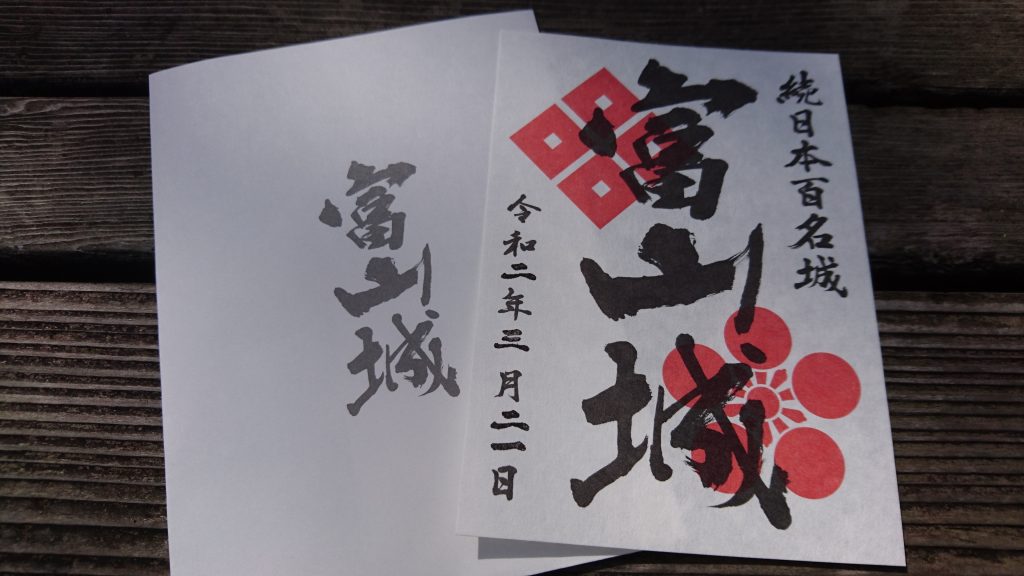 富山城
続日本百名城
富山城
令和二年三月二一日